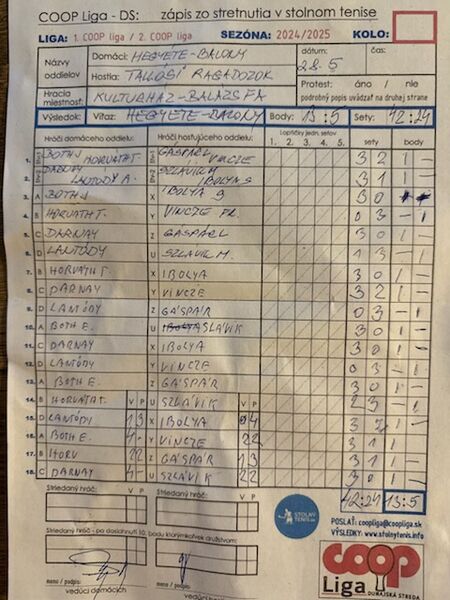 COOP Liga - DS: zápis zo stretnutia v stolnom tenise
LIGA: 1. COOP liga / 2. COOP liga SEZÓNA: 2024/2025 KOLO:
Názvy oddielov Domáci: HEGYÉTE-BALONY dátum: 28.5 čas:
Hostia: TALLÓSI RAGADOZOK Protest: áno / nie
Hracia miestnosť: KULTURHÁZ-BALÁZSFA podrobný popis uvádzať na druhej strane
Výsledok: Víťaz: HEGYÉTE-BALONY Body: 13:5 Sety: 42:24
Hráči domáceho oddielu: Hráči hosťujúceho oddielu: Loptičky jedn. setov sety body
1. 2. 3. 4. 5.
1. BOTH J HORVÁTH T. GÁSPÁR L VINCZE 3 2 1 -
2. DARNAY LANTÓDY A. SZLÁVIK M IBOLYA S 3 1 1 -
3. A BOTH J X IBOLYA S 3 0
4. B HORVÁTH T. Y VINCZE FR. 0 3 - 1
5. C DARNAY Z GÁSPÁR L 3 0 1 -
6. D LANTÓDY U SZLÁVIK M. 1 3 - 1
7. B HORVÁTH T. X IBOLYA 3 0 1 -
8. C DARNAY Y VINCZE 3 2 1 -
9. D LANTÓDY Z GÁSPÁR 0 3 - 1
10. A BOTH E. U SLÁVIK 3 0 1 -
11. C DARNAY X IBOLYA 3 0 1 -
12. D LANTÓDY Y VINCZE 0 3 - 1
13. A BOTH E. Z GÁSPÁR 3 0 1 -
14. B HORVÁTH T. V P U SZLÁVIK V P 2 3 - 1
15. D LANTÓDY 1 3 X IBOLYA 0 4 3 1 -
16. A BOTH E. 4 - Y VINCZE 2 2 3 1 1
17. B HORV 2 2 Z GÁSPÁR 1 3 3 1 1 -
18. C DARNAY 4 - U SZLÁVIK 2 2 3 0 1
42:24 13:5
Striedaný hráč: V P Striedaný hráč: V P
STOLNÝ TENIS
POSLAŤ: coopliga@coopliga.sk
VÝSLEDKY: www.stolnytenis.info
Striedaný hráč - po dosiahnutí 10. bodu ktorýmkoľvek družstvom:
coop
Liga DUNAJSKÁ STREDA
meno / podpis: meno / podpis:
vedúci domácich vedúci